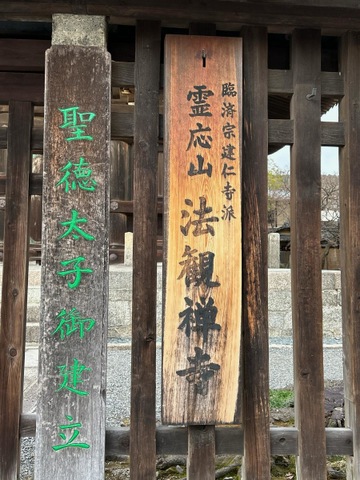 臨済宗建仁寺派
霊応山
法観禅寺
聖徳太子御建立